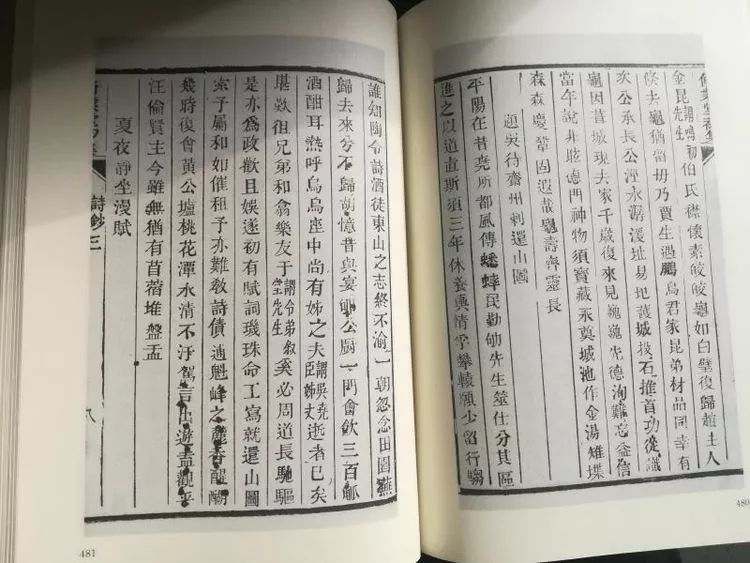 金昆謂鳴初伯氏先生襟懷素皎皎龜如白璧復歸趙主人
倏失龜猶當毋乃賈生遇鵩鳥君家昆弟材品同幸有
次公承長公溼水潺湲址易圮護城投石推首功從識
龜因葺城現去家千歲復來見巍巍先德洵難忘益信
當年說非眩德門神物須寶藏永奠城池作金湯雉堞
森森慶鞏固遐哉龜壽齊靈長
題吳待齋州刺還山圖
平陽在昔堯所都風傳蟋蟀民勤劬先生筮仕分其區
進之以道直斯須三年休養輿情孚攀轅願少留行騶
誰知陶令詩酒徒東山之志終不渝一朝忽念田園蕪
歸去來兮不歸胡憶昔與宴郇公廚一門會飲三百觚
酒酣耳熱呼烏烏座中尚有姊之夫謂吳堯臣姊丈逝者已矣
堪數徂兄弟和翁樂友于謂令弟敘堂先生奚必周道長馳驅
是亦為政歡且娛遂初有賦詞璣珠命工寫就還山圖
索予屬和如催租予亦難斂詩債逋魁峰之麓香醒酬
幾時復會黃公壚桃花潭水清不汙駕言出遊盍觀乎
汪倫賢主今雖無猶有苜蓿堆盤盂
夏夜靜坐漫賦
詩鈔三
八
481
480